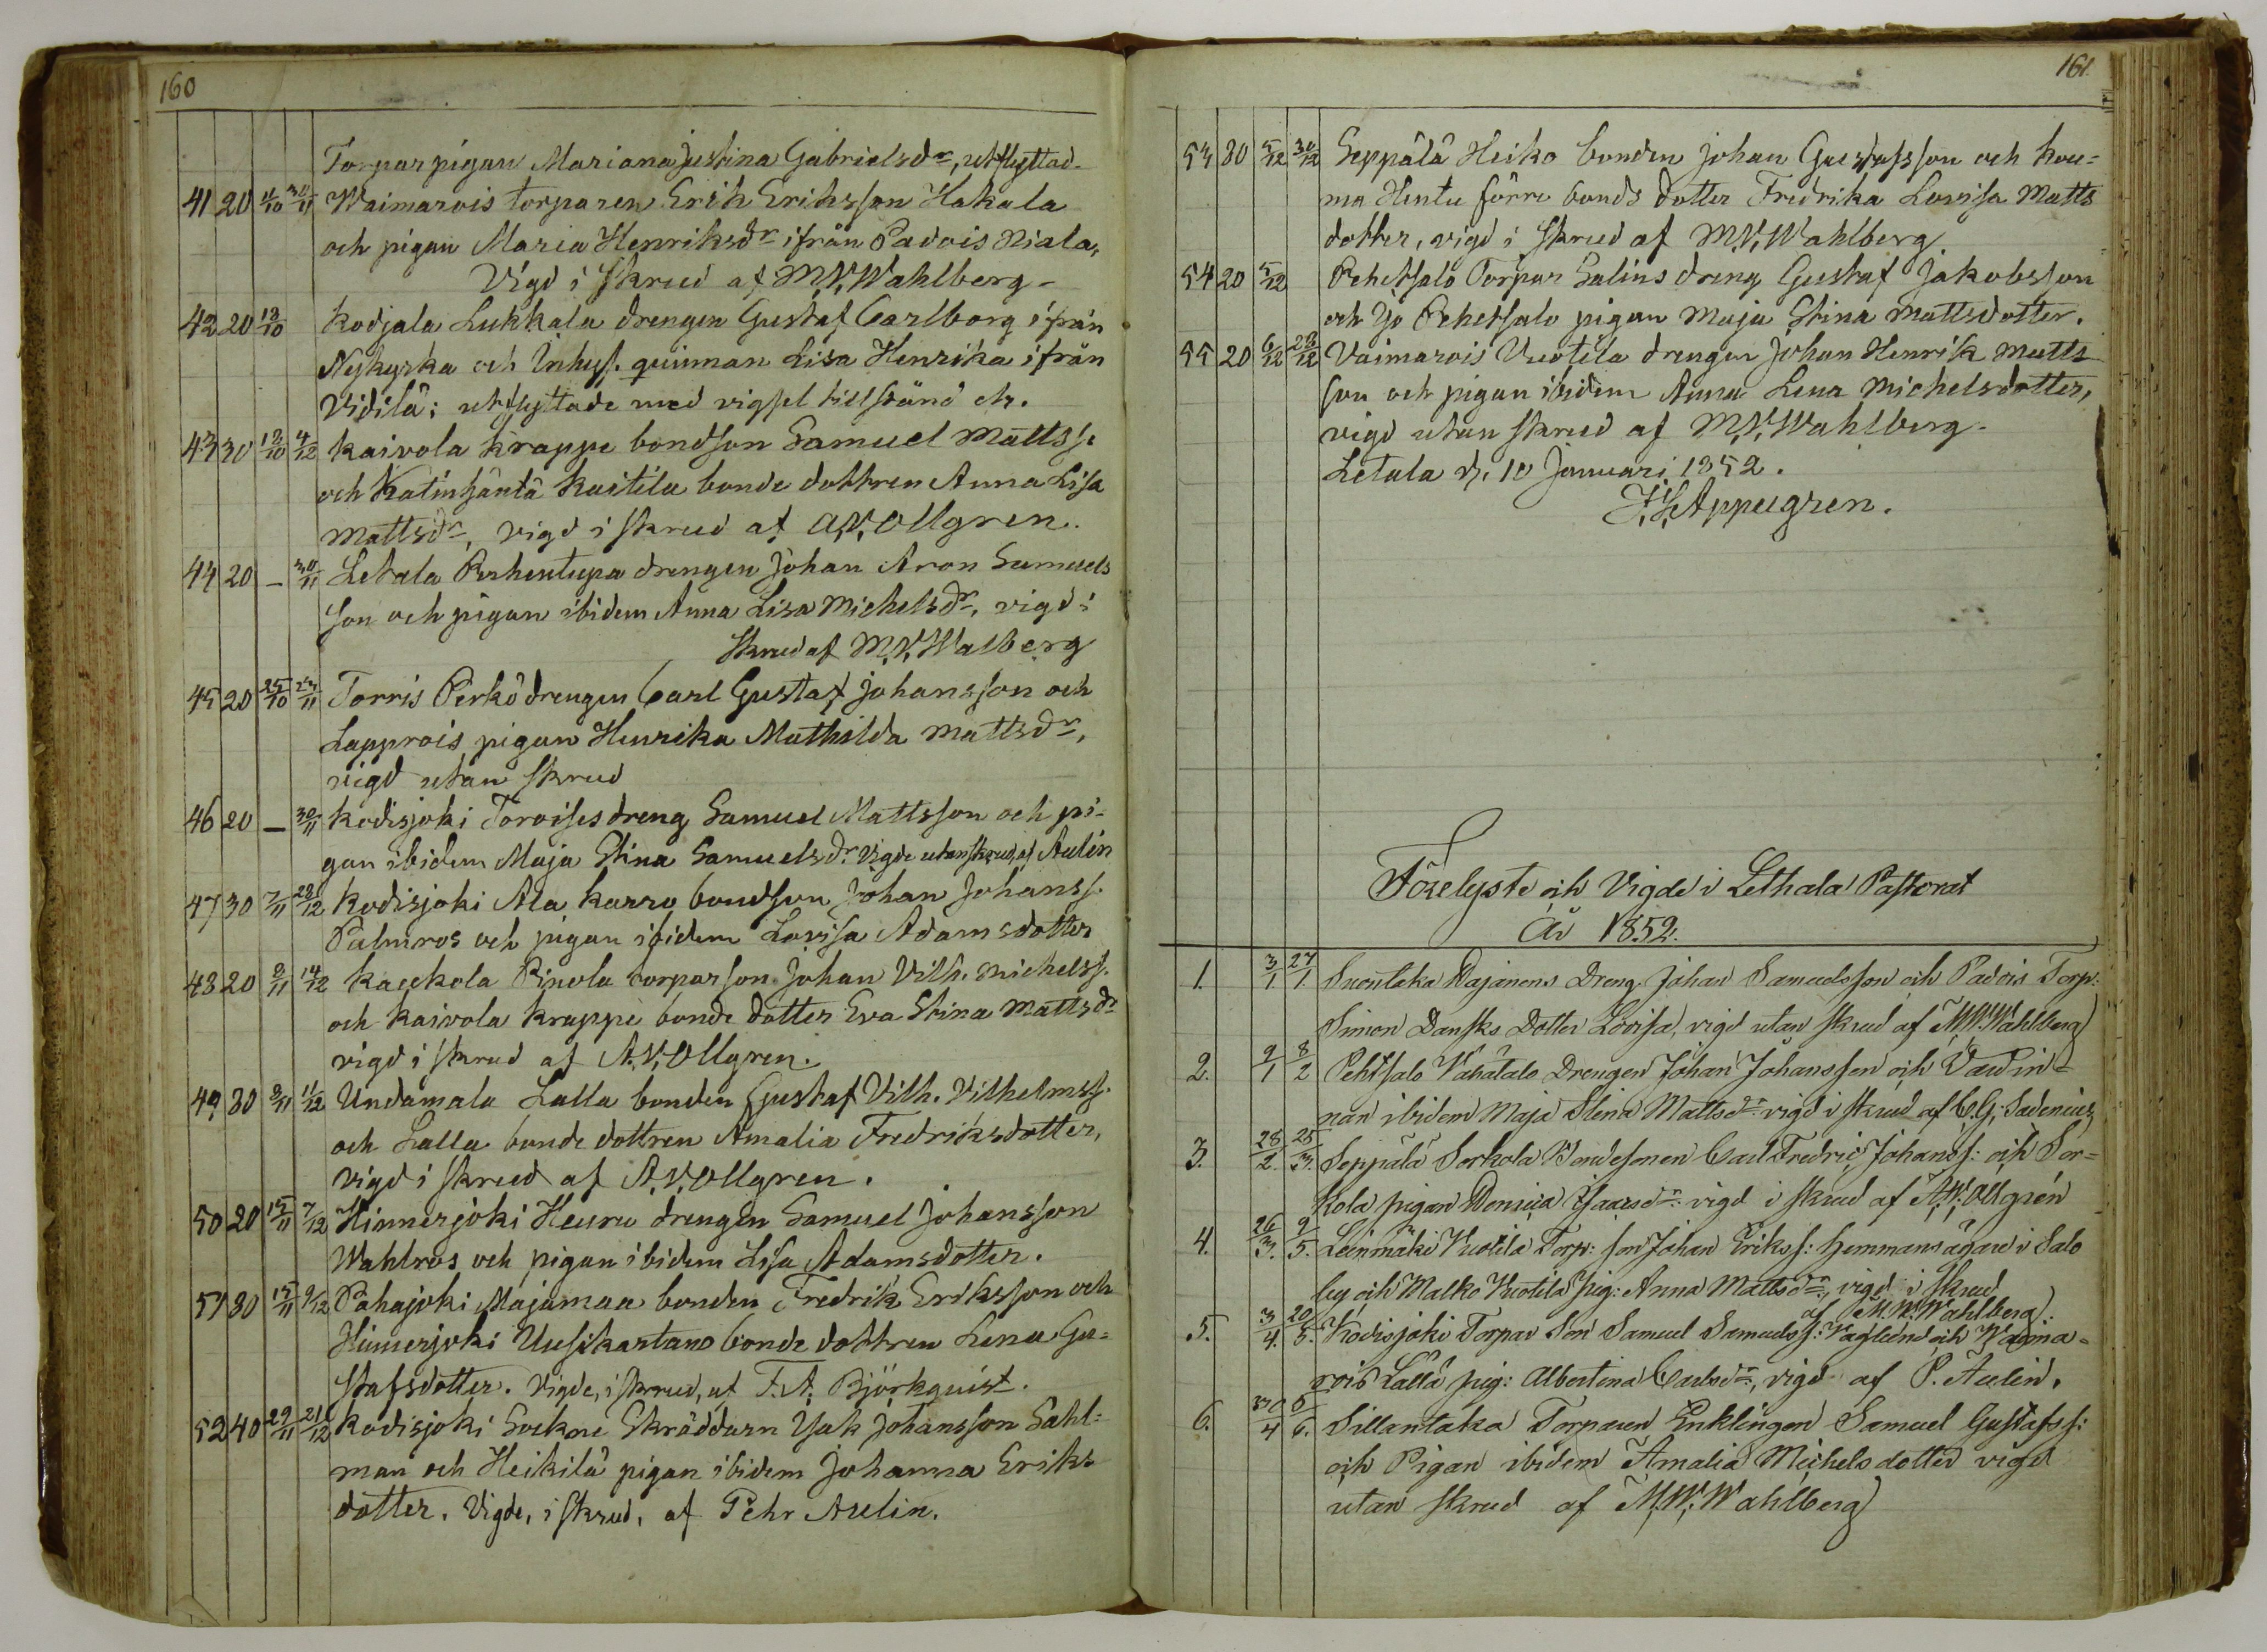 160
Torpar pigan Mariana Justina Gabrielsdr, utflyttad.
41 20 11/10 30/11 Waimarois torparen Erik Eriksson Hakala
och pigan Maria Henriksdr ifrån Padois Niala,
Vigd i skrud af M.V. Wahlberg.
42 20 12/10 Kodjala Lukkala drengen Gustaf Carlborg ifrån
Nykyrka och Inhys. quinnan Lisa Henrika ifrån
Vidilä; utflyttade med vigsel tillstånd etc.
43 30 12/10 4/12 Kaivola Krappe bondson Samuel Mattss.
och Katinhäntä Kaitila bonde dottren Anna Lisa
Mattsdr, vigd i skrud af A.V. Ollgren.
44 20 — 30/11 Letala Perhentupa drengen Johan Aron Samuels
son och pigan ibidem Anna Lisa Michelsdr, vigd i
skrud af M.V. Walberg
45 20 25/10 23/11 Torris Perkö drengen Carl Gustaf Johansson och
Lapprois pigan Henrika Mathilda Mattsdr,
vigd utan skrud
46 20 — 30/11 Kodisjoki Torvises dreng Samuel Mattsson och pi-
gan ibidem Maja Stina Samuelsdr. Vigde utan skrud, af Aulin
47 30 7/11 28/12 Kodisjoki Ala Karro bondson Johan Johanss.
Palmros och pigan ibidem Lovisa Adamsdotter
48 20 9/11 14/12 Kaukola Pinola torparson Johan Vilh. Michelss.
och Kaivola Krappe bonde dotter Eva Stina Mattsdr
vigd i skrud af A.V. Ollgren.
49 30 9/11 11/12 Undamala Lalla bonden Gustaf Vilh. Vilhelmss.
och Lalla bonde dottren Amalia Fredriksdotter,
vigd i skrud af A.V. Ollgren.
50 20 15/11 7/12 Hinnerjoki Heuru drengen Samuel Johansson
Wahlros och pigan ibidem Lisa Adamsdotter.
51 30 15/11 9/12 Pahajoki Majamaa bonden Fredrik Eriksson och
Hinnerjoki Uusikartano bonde dottren Lena Gu-
stafsdotter. Vigde, i skrud, af F.A. Björkquist.
52 40 29/11 21/12 Kodisjoki Sockne Skräddarn Isak Johansson Sahl-
man och Heikilä pigan ibidem Johanna Eriks
dotter. Vigde, i skrud, af Pehr Aulin.
161.
53 30 5/12 30/12 Seppälä Heiko bonden Johan Gustafsson och Kou-
ma Hentu förre bonds dotter Fredrika Lovisa Matts
dotter, vigd i skrud af M.V. Wahlberg.
54 20 5/12 Pehtsalo Torpar Salins dreng Gustaf Jakobsson
och Yö Pehtsalo pigan Maja Stina Mattsdotter.
55 20 6/12 28/12 Vaimarois Vuotila drengen Johan Henrik Matts
son och pigan ibidem Anna Lena Michelsdotter,
vigd utan skrud af M.V. Wahlberg.
Letala d. 10 Januari 1852.
Appelgren.
Förelyste och Vigde i Lethala Pastorat
År 1852.
1. 3/1 27/1. Suontaka Rajanens Dreng Johan Samuelsson och Padois Torp:
Simon Dansks Dotter Lovisa, vigd utan skrud af M.W. Wahlberg
2. 9/1 8/2 Pehtsalo Vähätalo Drengen Johan Johansson och
nan ibidem Maja Stina Mattsdr vigd i skrud af C.G. Sadenius
3. 28/2. 25/3. Seppälä Sorkola Bondesonen Carl Fredric Johanss: och Sor-
kola pigan Isaacsdr vigd i skrud af A.W. Ollgrén
4. 26/3. 9/5. Leinmäki Vuotila Torp: son Johan Erikss: hemmans ägare i Salo
by och Malko Vuotila pig: Anna Mattsdr, vigd i skrud
af M.W. Wahlberg.
5. 3/4. 20/5. Kodisjoki Torpar Son Samuel Samuelss: Vaglund och Waima-
rois Lalla pig: Albertina Carlsdr, vigd af P. Aulin.
6. 30/4 8/6. Sillantaka Torparen Enklingen Samuel Gustafss:
och Pigan ibidem Amalia Michelsdotter vigd
utan skrud af M.W. Wahlberg